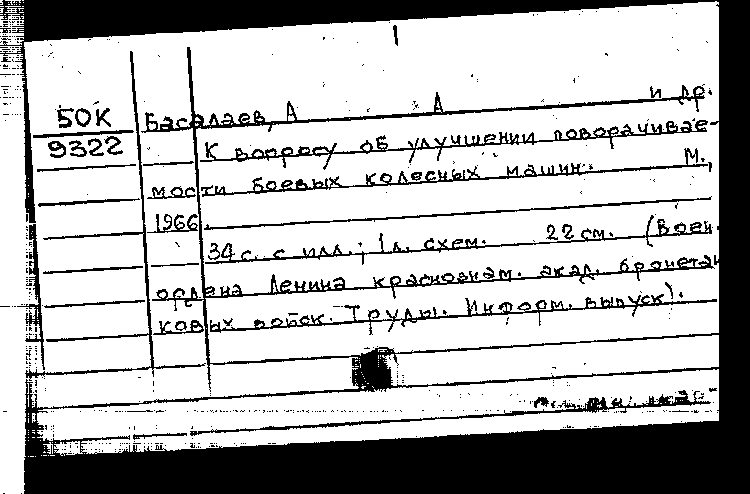 50К
9322
Басалаев, А А и др.
К вопросу об улучшении поворачивае-
мости боевых колесных машин. М.,
1966.
34 с. с илл.; 1 л. схем. 22 см. (Воен.
ордена Ленина краснознам. акад. бронетан
ковых войск. Труды. Информ. выпуск).